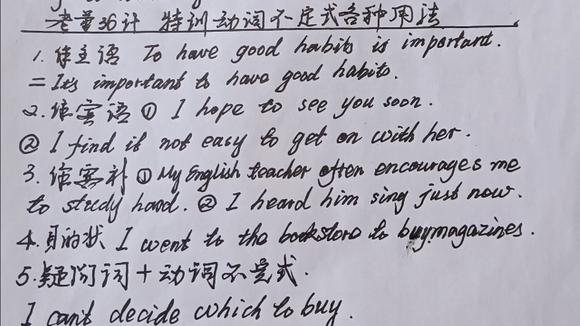 老董36计 特训动词不定式各种用法
1. 作主语 To have good habits is important.
= It's important to have good habits.
2. 作宾语 ① I hope to see you soon.
② I find it not easy to get on with her.
3. 作宾补 ① My English teacher often encourages me
to study hard. ② I heard him sing just now.
4. 目的状 I went to the bookstore to buy magazines.
5. 疑问词 + 动词不定式.
I can't decide which to buy.